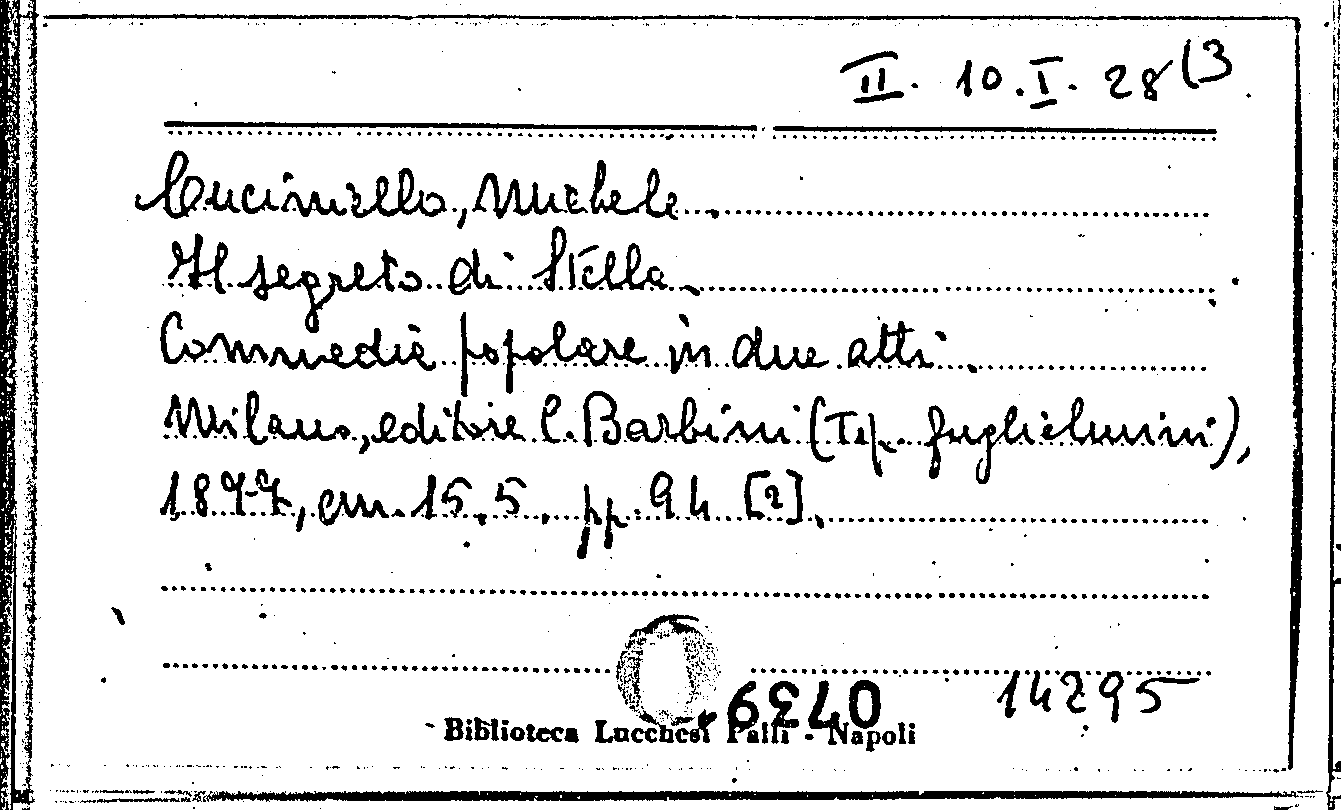 II. 10. I. 28 (3
Cuciniello, Michele.
Il segreto di Stella.
Commedia popolare in due atti.
Milano, editore C. Barbini (Tip. Guglielmini),
1877, cm. 15,5, pp. 94 [2].
14295
Biblioteca Lucchesi Palli - Napoli